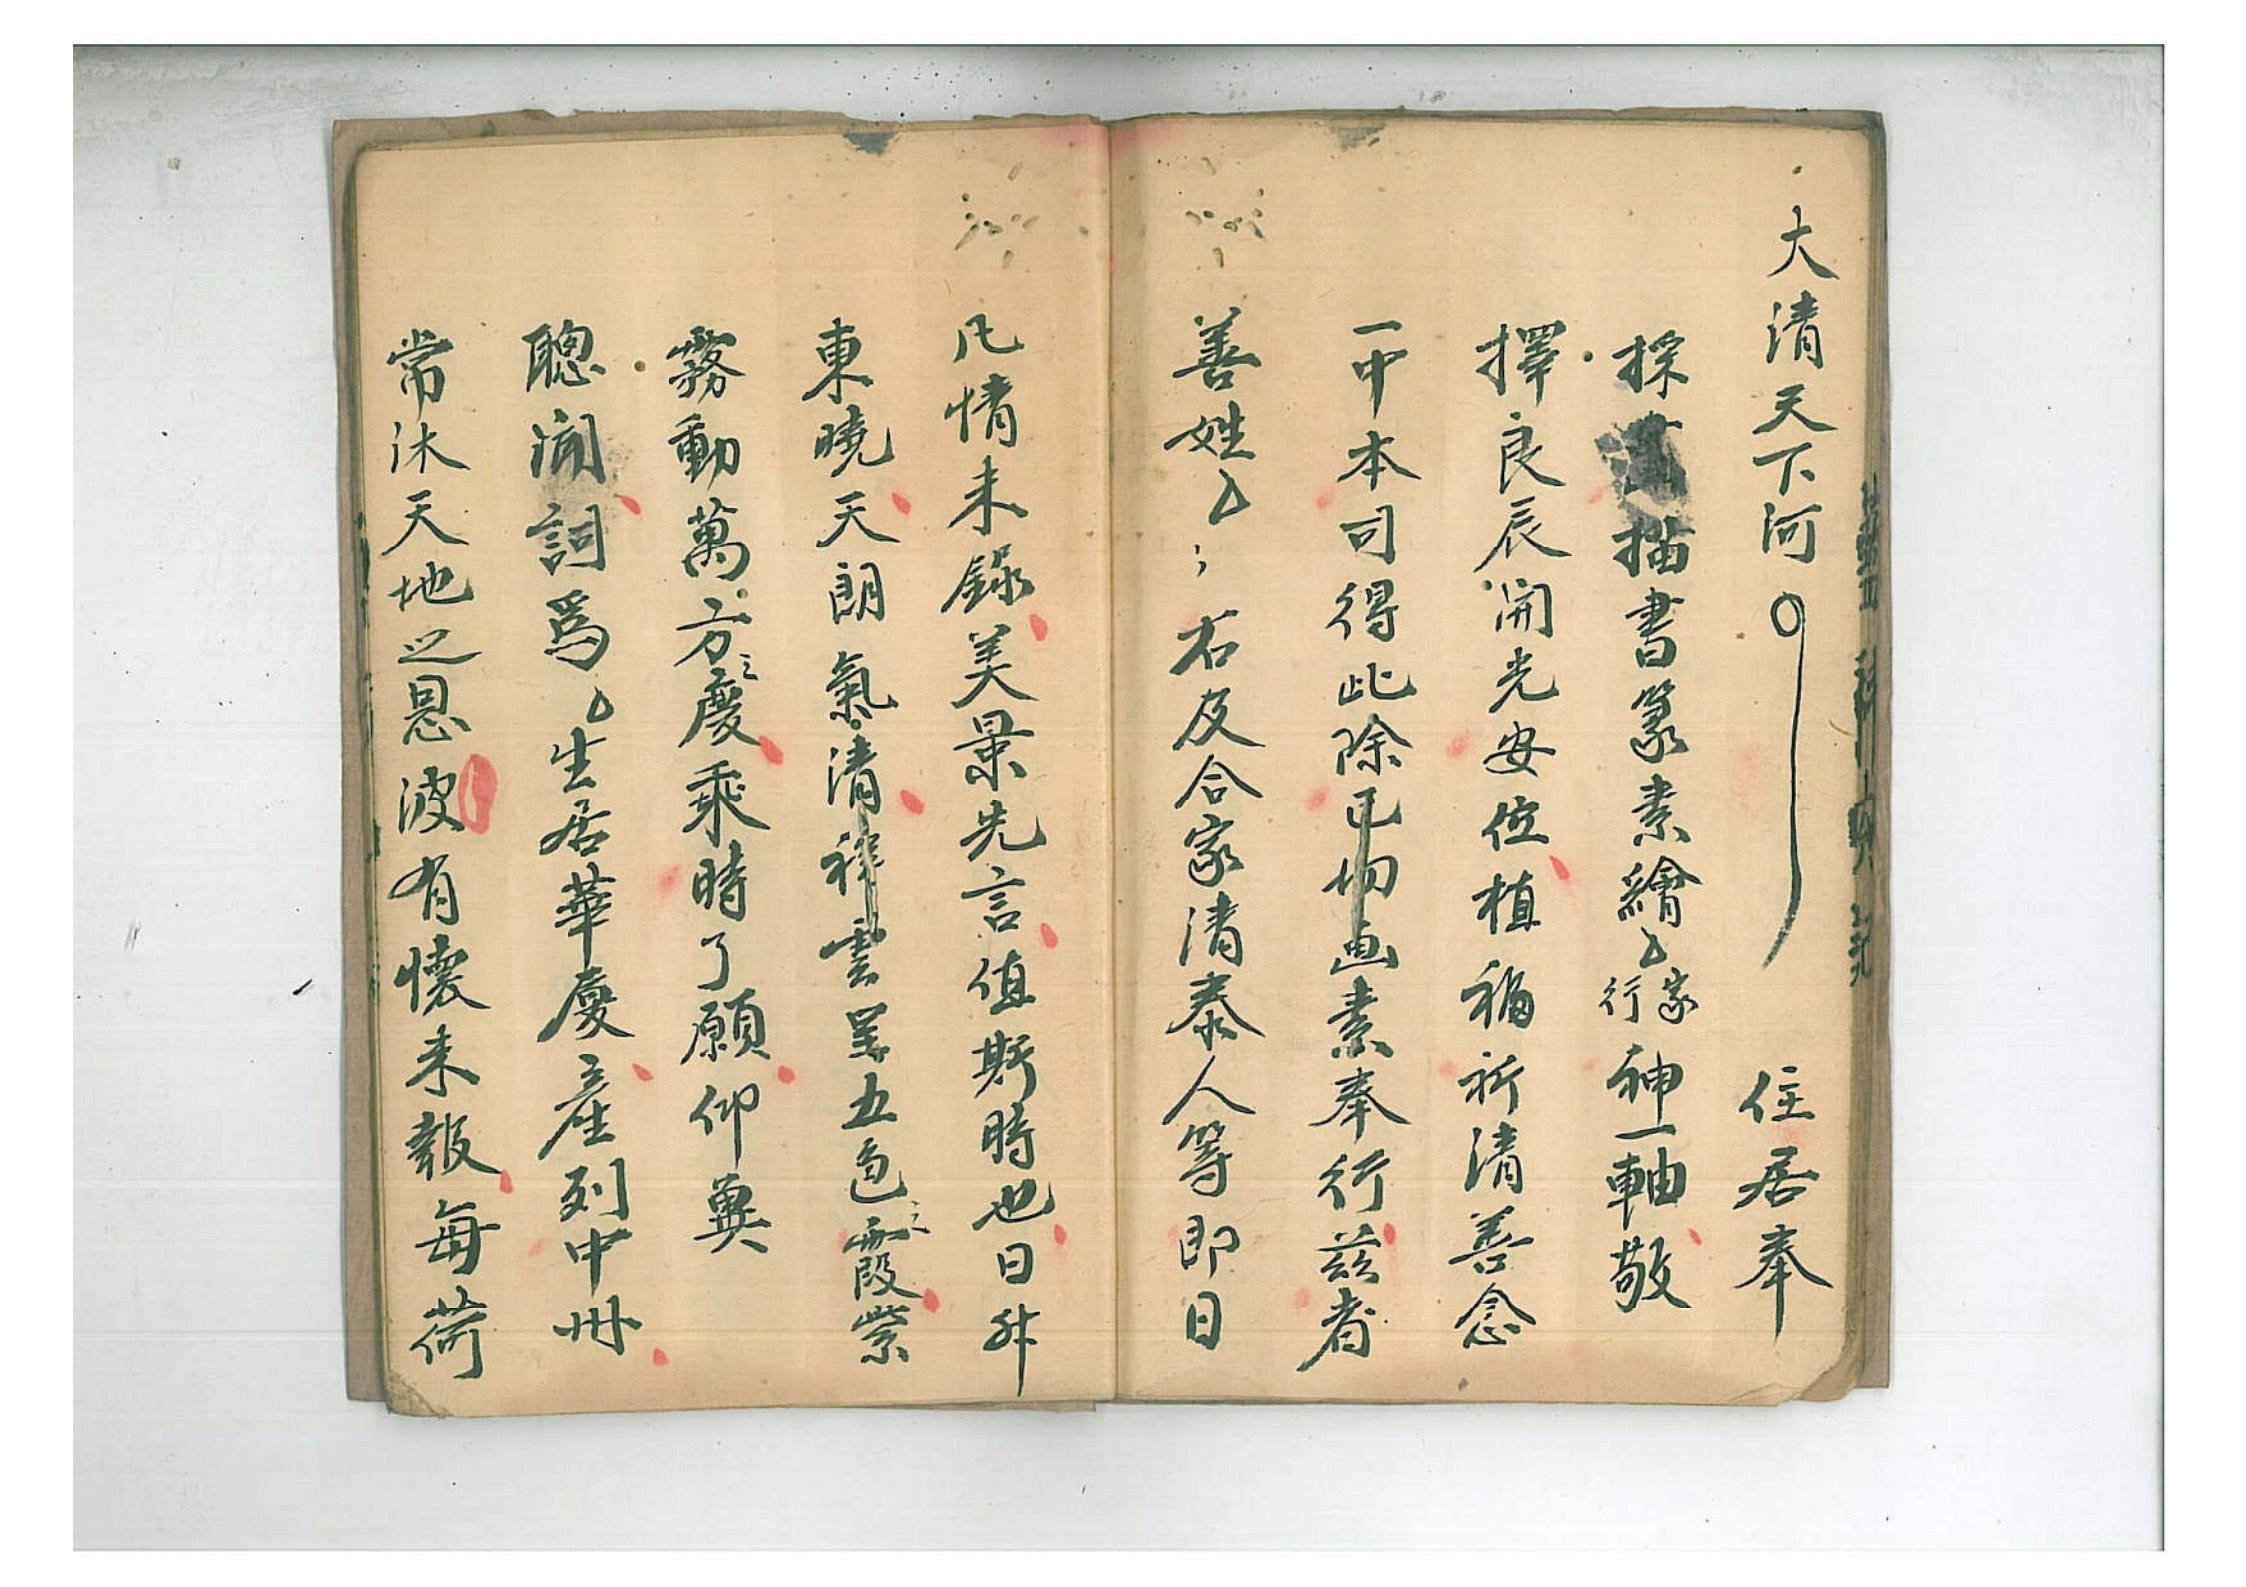 大清天下河 住居奉
採 描書篆素繪〻家行神一軸敬
擇良辰開光安位植福祈清善念
一中本司得此除已切画素奉行茲者
善姓〻右及合家清泰人等即日
凡情未錄美景先言值斯時也日升
東曉天朗氣清祥雲呈五色之霞紫
霧動萬方之慶乘時了願仰冀
聰聞詞爲〻生居華廈產列中州
常沐天地之恩波有懷未報每荷